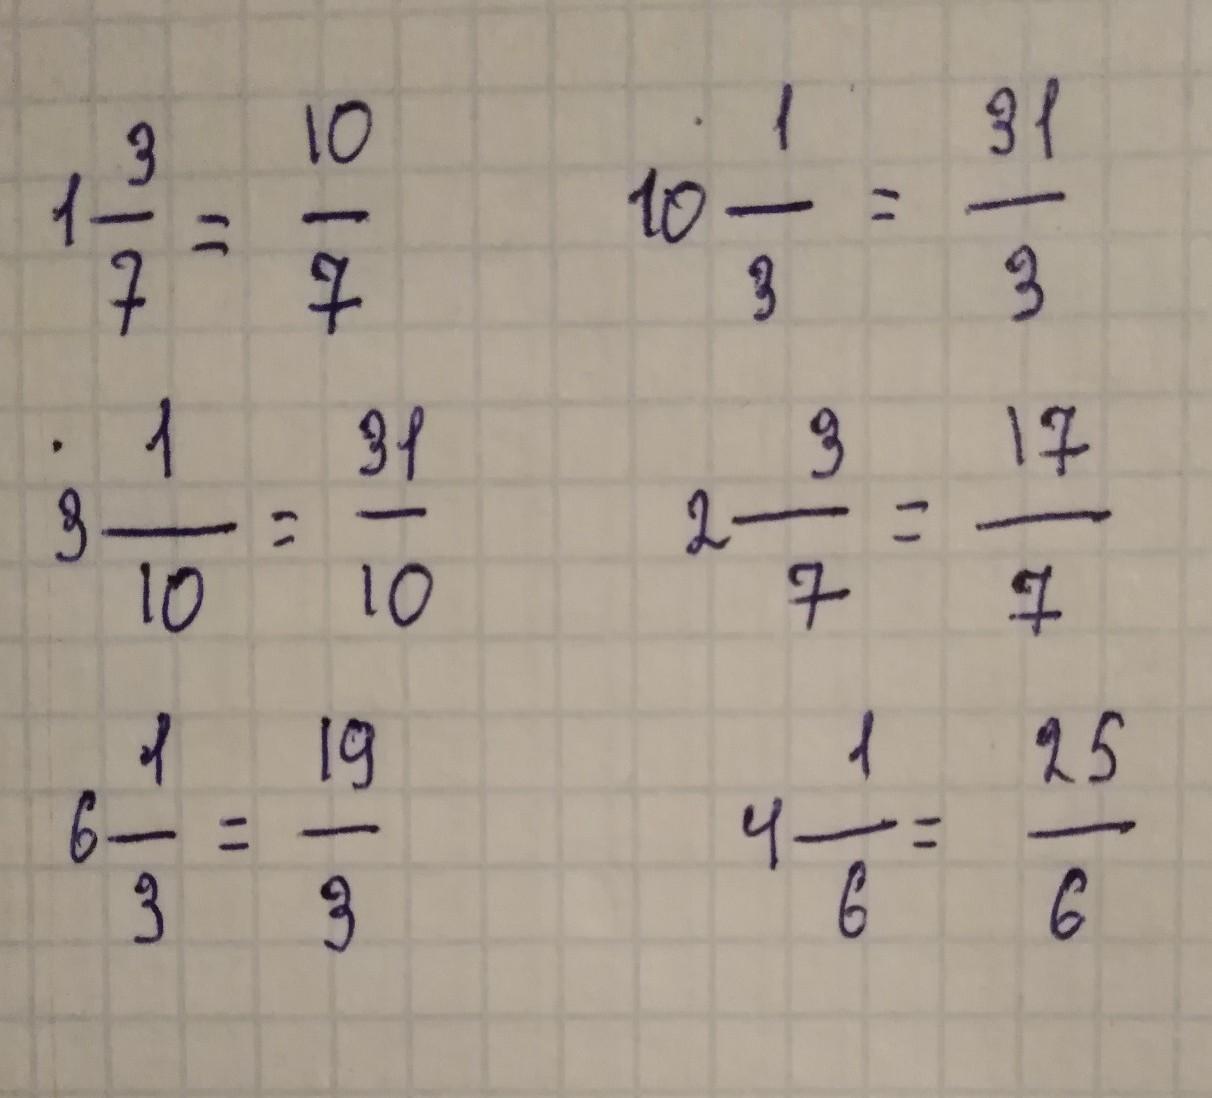 1 3/7 = 10/7
10 1/3 = 31/3
3 1/10 = 31/10
2 3/7 = 17/7
6 1/3 = 19/3
4 1/6 = 25/6